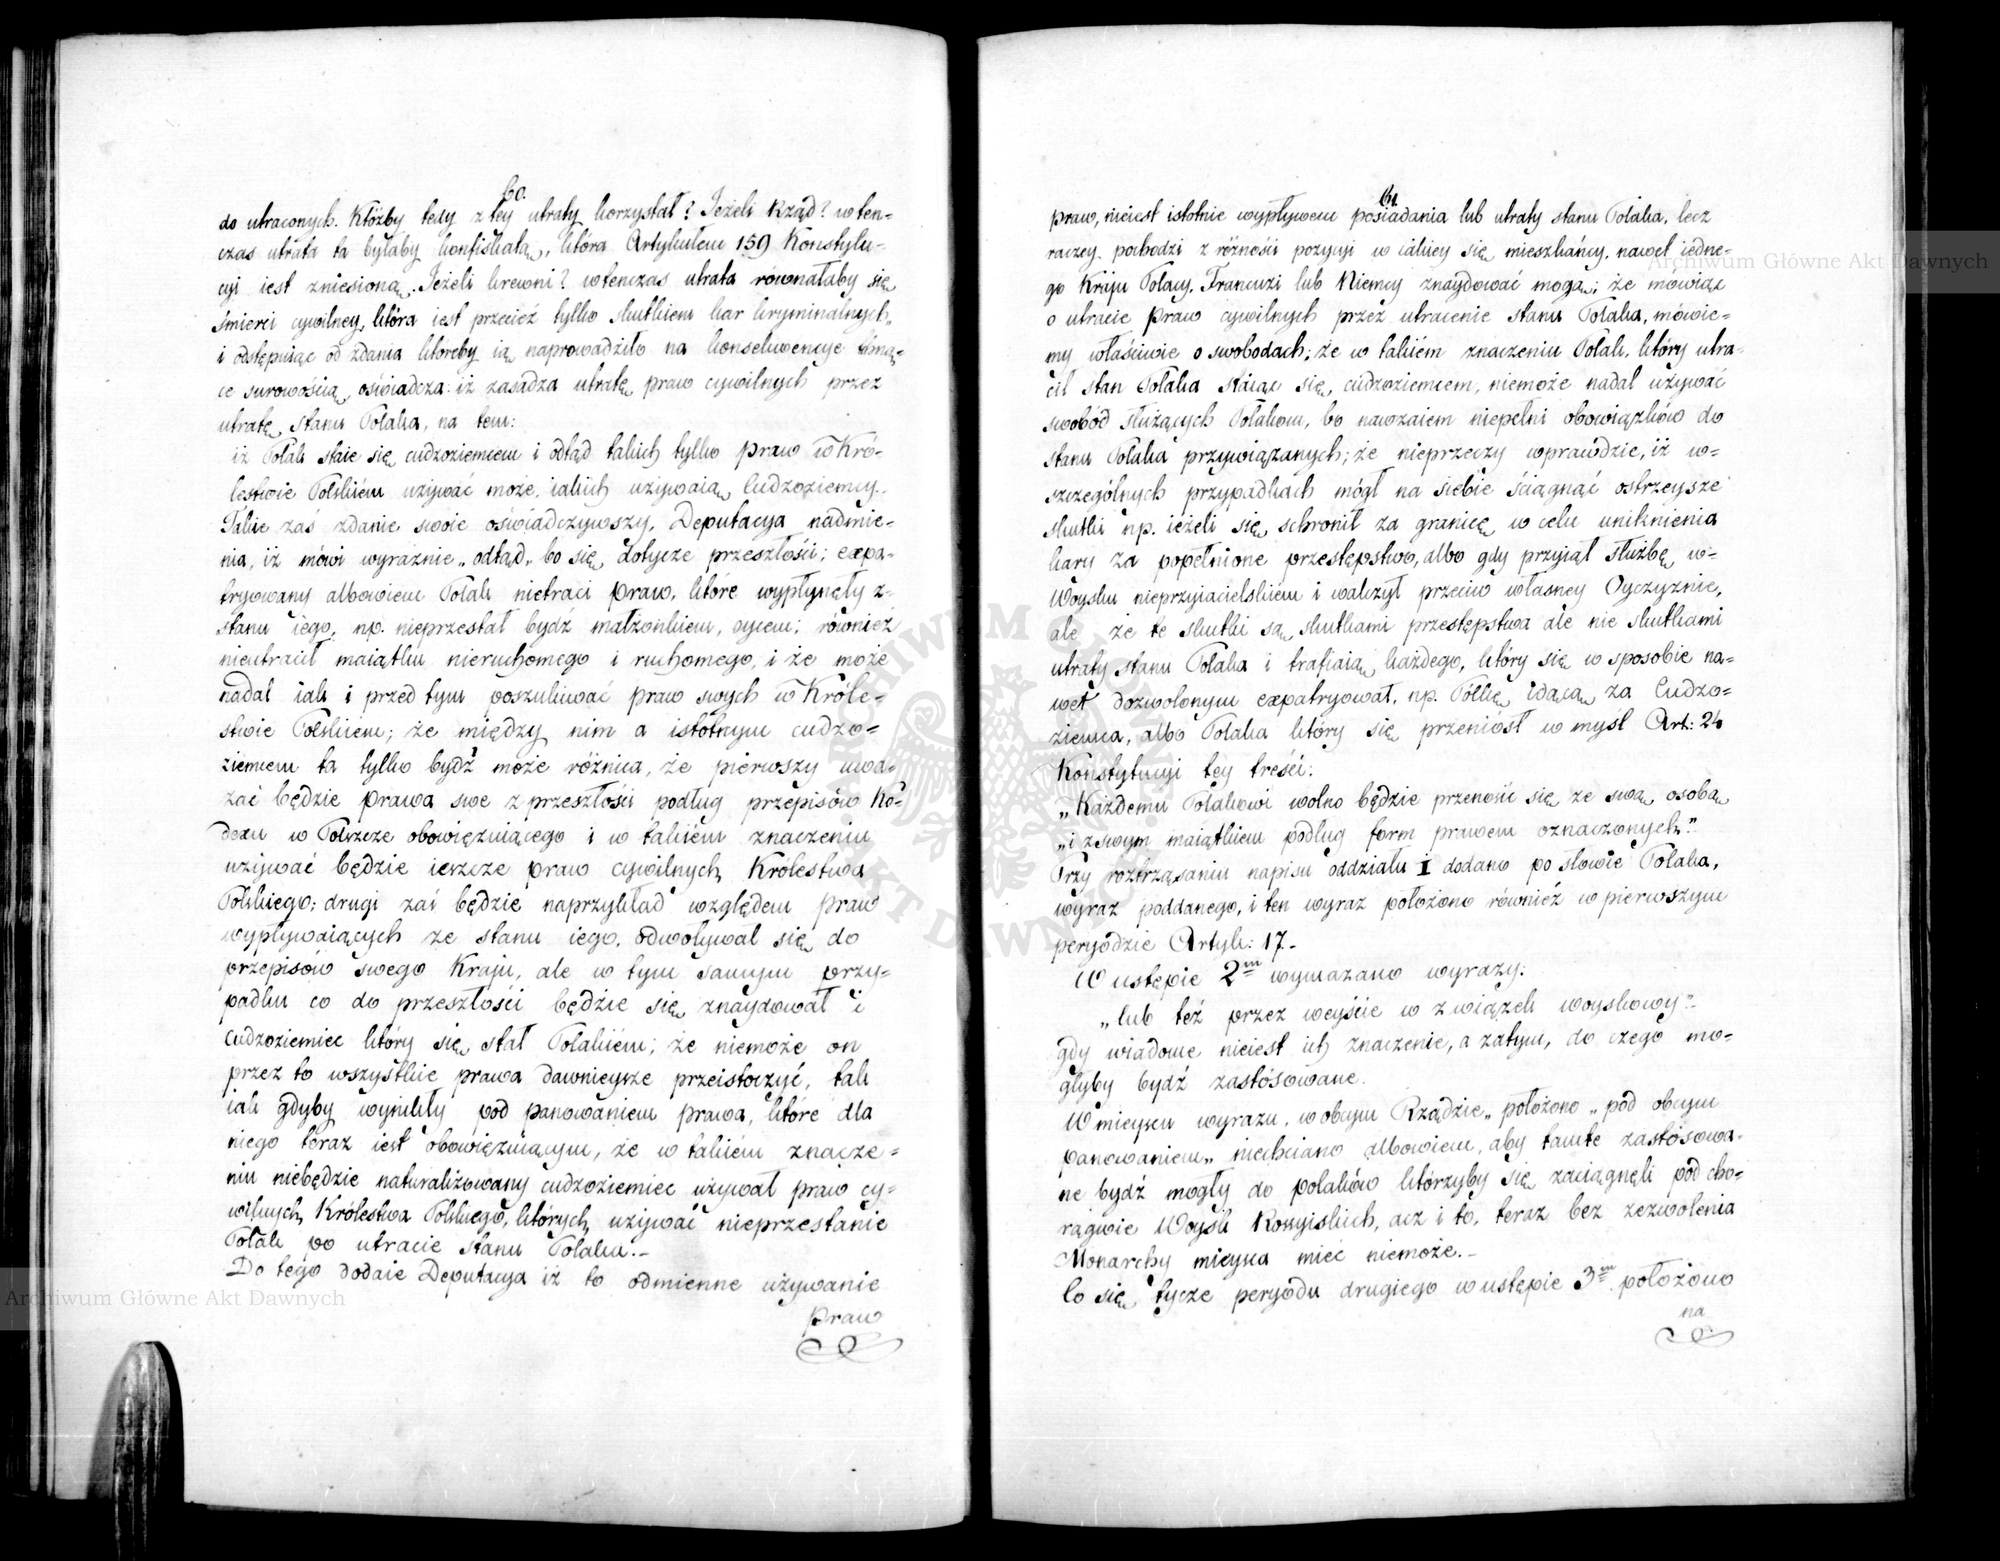 60.
do utraconych. Któżby tedy z tey utraty korzystał? Jeżeli Rząd? wten=
czas utrata ta byłaby konfiskatą, która Artykułem 159 Konstytu=
cyi iest zniesioną. Jeżeli krewni? wtenczas utrata równałaby się
śmierci cywilney, która iest przecież tylko skutkiem kar kryminalnych,
i odstępuiąc od zdania któreby ią naprowadziło na konsekwencye tchną=
ce surowością, oświadcza: iż zasadza utratę praw cywilnych przez
utratę stanu Polaka, na tem:
iż Polak staie się cudzoziemcem i odtąd takich tylko praw w Kró=
lestwie Polskiém używać może, iakich używaią Cudzoziemcy.
Takie zaś zdanie swoie oświadczywszy, Deputacya nadmie=
nia, iż mówi wyraznie „odtąd„ bo się dotycze przeszłości; expa=
tryowany albowiem Polak nietraci praw, które wypłynęły z=
stanu iego, np. nieprzestał bydź małżonkiem, oycem; również
nieutracił maiątku nieruchomego i ruchomego, i że może
nadal iak i przed tym poszukiwać praw swych w Króle=
stwie Polskiém; że między nim a istotnym cudzo=
ziemcem ta tylko bydź może różnica, że pierwszy uwa=
żać będzie prawa swe z przeszłości podług przepisów Ko=
dexu w Polszcze obowięzuiącego i w takiém znaczeniu
używać będzie ieszcze praw cywilnych Królestwa
Polskiego; drugi zaś będzie naprzykład względem praw
wypływaiących ze stanu iego, odwoływał się do
przepisów swego Kraju, ale w tym samym przy=
padku co do przeszłości będzie się znaydował i
Cudzoziemiec który się stał Polakiém; że niemoże on
przez to wszystkie prawa dawnieysze przeistoczyć, tak
iak gdyby wynikły pod panowaniem prawa, które dla
niego teraz iest obowięzuiącym, że w takiém znacze=
niu niebędzie naturalizowany cudzoziemiec używał praw cy=
wilnych Królestwa Polskiego, których używać nieprzestanie
Polak po utracie stanu Polaka.
Do tego dodaie Deputacya iż to odmienne używanie
praw
61.
praw, nieiest istotnie wypływem posiadania lub utraty stanu Polaka, lecz
raczey pochodzi z różności pozycyi w iakiey się mieszkańcy, nawet iedne=
go Kraju Polacy, Francuzi lub Niemcy znaydować mogą; że mówiąc
o utracie praw cywilnych przez utracenie stanu Polaka, mówie=
my właściwie o swobodach; że w takiém znaczeniu Polak, który utra=
cił stan Polaka staiąc się cudzoziemcem, niemoże nadal używać
swobód służących Polakom, bo nawzaiem niepełni obowiązków do
stanu Polaka przywiązanych; że nieprzeczy wprawdzie, iż w=
szczególnych przypadkach mógł na siebie ściągnąć ostrzeysze
skutki np. ieżeli się schronił za granicę w celu uniknienia
kary za popełnione przestępstwo, albo gdy przyiął służbę w=
Woysku nieprzyiacielskiém i walczył przeciw własney Oyczyznie,
ale że te skutki są skutkami przestępstwa ale nie skutkami
utraty stanu Polaka i trafiaią każdego, który się w sposobie na=
wet dozwolonym expatryował, np. Polkę idącą za Cudzo=
ziemca, albo Polaka który się przeniósł w myśl Art: 24
Konstytucyi tey treści:
„Każdemu Polakowi wolno będzie przenosić się ze swą osobą
„i z swym maiątkiem podług form prawem oznaczonych.”
Przy roztrząsaniu napisu oddziału I dodano po słowie Polaka,
wyraz poddanego, i ten wyraz położono również w pierwszym
peryodzie Artyk: 17.
W ustępie 2m wymazano wyrazy:
„lub też przez weyście w związek woyskowy”
gdy wiadome nieiest ich znaczenie, a zatym, do czego mo=
głyby bydź zastósowane.
W mieyscu wyrazu, w obcym Rządzie„ położono „pod obcym
panowaniem„ niechciano albowiem, aby tamte zastósowa=
ne bydź mogły do polaków którzyby się zaciągnęli pod cho=
rągwie Woysk Rossyiskich, acz i to, teraz bez zezwolenia
Monarchy mieysca mieć niemoże.
Co się tycze peryodu drugiego w ustępie 3m położono
na
Archiwum Główne Akt Dawnych
Archiwum Główne Akt Dawnych
ARCHIWUM GŁÓWNE AKT DAWNYCH